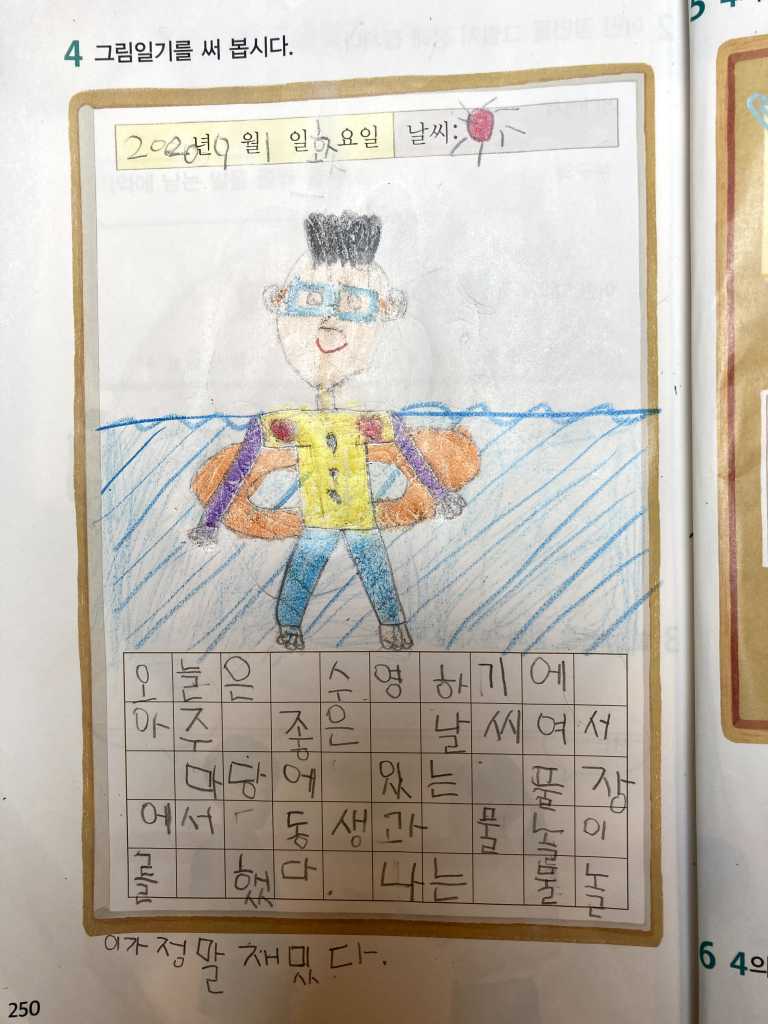 4 그림일기를 써 봅시다.
2020년 9월 1일 화요일 날씨:
오늘은 수영하기에
아주 좋은 날씨여서
마당에 있는 풀장
에서 동생과 물놀이
를 했다. 나는 물놀
이가 정말 재밌다.
250
6 4의